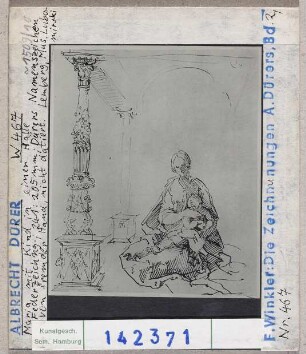 ALBRECHT DÜRER W 467
Maria mit Kind in einer Halle
Federzeichnung, 205 mm, Dürers Namenszeichen
von fremder Hand, nicht datiert. Lemberg, Mus. Lubo-
mirski
F. Winkler: Die Zeichnungen A. Dürers, Bd. 2,
Nr. 467
Kunstgesch.
Sem. Hamburg
142371